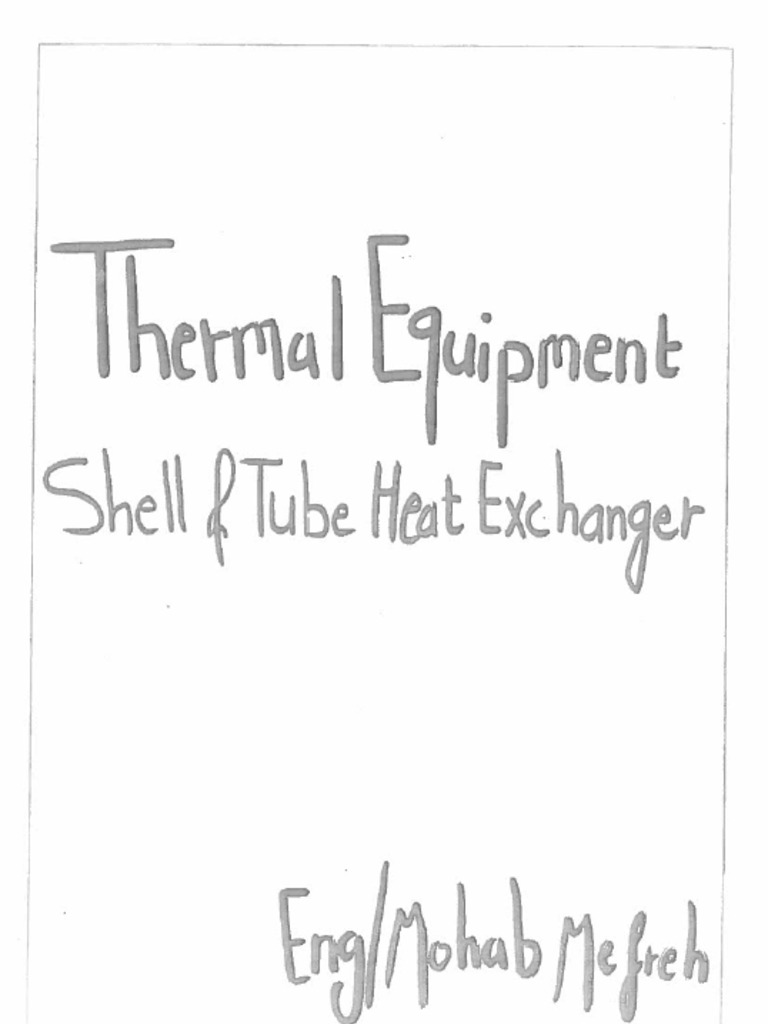 Thermal Equipment
Shell & Tube Heat Exchanger
Eng/Mohab Mefreh